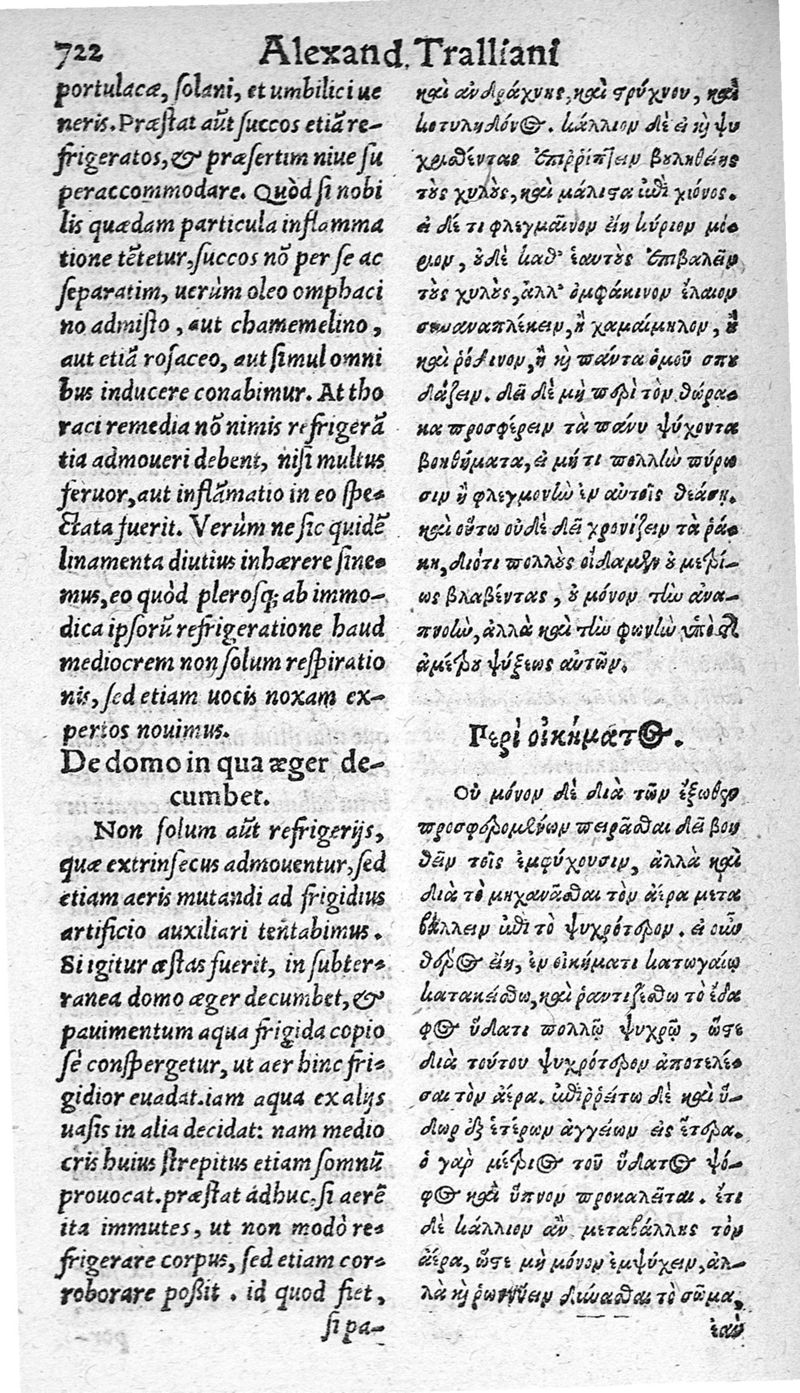 722
Alexand. Tralliani
portulacæ, ſolani, et umbilici ue
neris. Præſtat aũt ſuccos etiã re-
frigeratos, & præſertim niue ſu
peraccommodare. Quòd ſi nobi
lis quædam particula inflamma
tione tẽtetur, ſuccos nõ per ſe ac
ſeparatim, uerùm oleo omphaci
no admiſto, aut chamemelino,
aut etiã roſaceo, aut ſimul omni
bus inducere conabimur. At tho
raci remedia nõ nimis refrigerã
tia admoueri debent, niſi multus
feruor, aut inflãmatio in eo ſpe-
ctata fuerit. Verùm ne ſic quidẽ
linamenta diutius inhærere ſine-
mus, eo quòd pleroſq; ab immo-
dica ipſorũ refrigeratione haud
mediocrem non ſolum reſpiratio
nis, ſed etiam uocis noxam ex-
pertos nouimus.
De domo in qua æger de-
cumbet.
Non ſolum aũt refrigerijs,
quæ extrinſecus admouentur, ſed
etiam aeris mutandi ad frigidius
artificio auxiliari tentabimus.
Si igitur æſtas fuerit, in ſubter-
ranea domo æger decumbet, &
pauimentum aqua frigida copio
ſè conſpergetur, ut aer hinc fri-
gidior euadat. iam aqua ex alijs
uaſis in alia decidat: nam medio
cris huius ſtrepitus etiam ſomnũ
prouocat. præſtat adhuc, ſi aerẽ
ita immutes, ut non modò re-
frigerare corpus, ſed etiam cor-
roborare poßit. id quod fiet,
ſi pa-
καὶ ἀνδράχνης, καὶ στρύχνου, καὶ
κοτυληδόνος. κάλλιον δὲ εἰ καὶ ψυ
χρισθέντας ἐπιρρίπτειν βουληθείης
τοὺς χυλοὺς, καὶ μάλιστα ἐπὶ χιόνος.
εἰ δέ τι φλεγμαῖνον εἴη κύριον μό-
ριον, οὐδὲ καθ' ἑαυτοὺς ἐπιβαλεῖν
τοὺς χυλοὺς, ἀλλ' ὀμφάκινον ἔλαιον
συναναπλέκειν, ἢ χαμαίμηλον, ἢ
καὶ ῥόδινον, ἢ καὶ πάντα ὁμοῦ σπου
δάζειν. δεῖ δὲ μὴ περὶ τὸν θώρα-
κα προσφέρειν τὰ πάνυ ψύχοντα
βοηθήματα, εἰ μή τι πολλὴν πύρω
σιν ἢ φλεγμονὴν ἐν αὐτοῖς θεάσῃ.
καὶ οὕτω οὐδὲ δεῖ χρονίζειν τὰ ῥά-
κη, διότι πολλοὺς οἴδαμεν οὐ μετρί-
ως βλαβέντας, οὐ μόνον τὴν ἀνα-
πνοὴν, ἀλλὰ καὶ τὴν φωνὴν ὑπὸ τῆς
ἀμέτρου ψύξεως αὐτῶν.
Περὶ οἰκήματος.
Οὐ μόνον δὲ διὰ τῶν ἔξωθεν
προσφερομένων πειρᾶσθαι δεῖ βοη
θεῖν τοῖς ἐμψύχουσιν, ἀλλὰ καὶ
διὰ τὸ μηχανᾶσθαι τὸν ἀέρα μετα
βάλλειν ἐπὶ τὸ ψυχρότερον. εἰ οὖν
θέρος εἴη, ἐν οἰκήματι κατωγαίῳ
κατακείσθω, καὶ ῥαντιζέσθω τὸ ἔδα
φος ὕδατι πολλῷ ψυχρῷ, ὥστε
διὰ τούτου ψυχρότερον ἀποτελέ-
σαι τὸν ἀέρα. ἐπιρρείτω δὲ καὶ ὕ-
δωρ ἐξ ἑτέρων ἀγγείων εἰς ἕτερα.
ὁ γὰρ μέτριος τοῦ ὕδατος ψό-
φος καὶ ὕπνον προκαλεῖται. ἔτι
δὲ κάλλιον ἂν μεταβάλλης τὸν
ἀέρα, ὥστε μὴ μόνον ἐμψύχειν, ἀλ-
λὰ καὶ ῥωννύειν δύνασθαι τὸ σῶμα,
ἐὰν